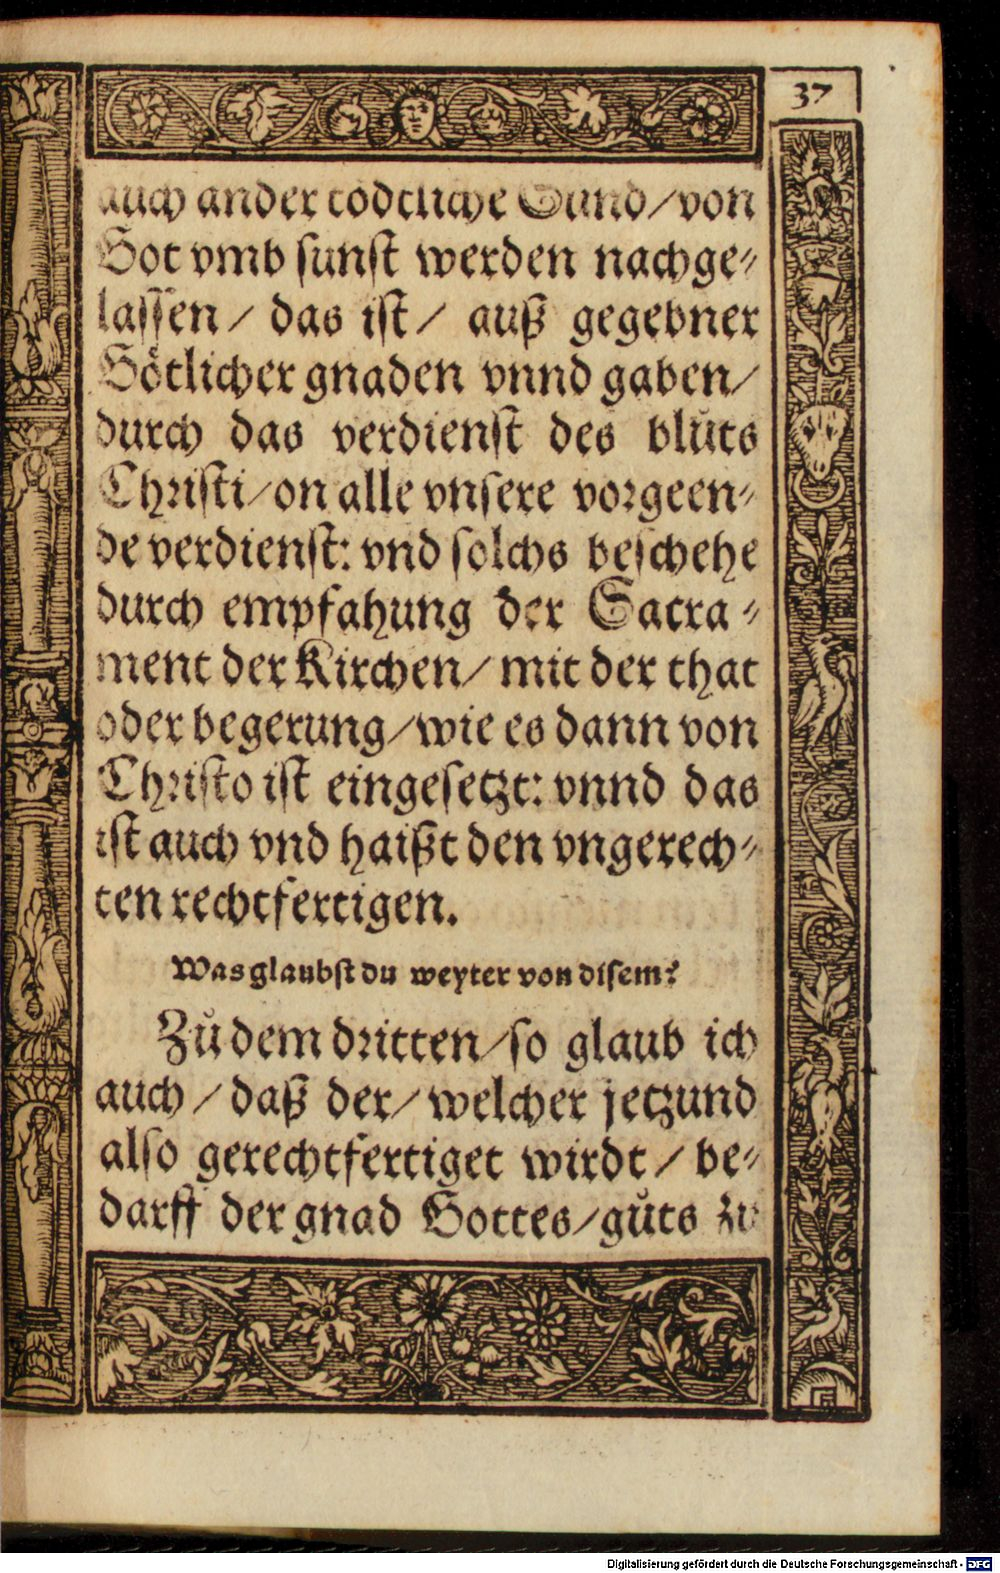 37
auch ander todtliche Sund/von
Got vmb sunst werden nachge⸗
lassen/ das ist/ auß gegebner
Götlicher gnaden vnnd gaben/
durch das verdienst des blůts
Christi/on alle vnsere vorgeen⸗
de verdienst: vnd solchs beschehe
durch empfahung der Sacra⸗
ment der Kirchen/ mit der that
oder begerung/wie es dann von
Christo ist eingesetzt: vnnd das
ist auch vnd haißt den vngerech⸗
ten rechtfertigen.
Was glaubst du weyter von disem?
Zů dem dritten/so glaub ich
auch/ daß der/ welcher jetzund
also gerechtfertiget wirdt/ be⸗
darff der gnad Gottes/gůts zu
Digitalisierung gefördert durch die Deutsche Forschungsgemeinschaft - DFG